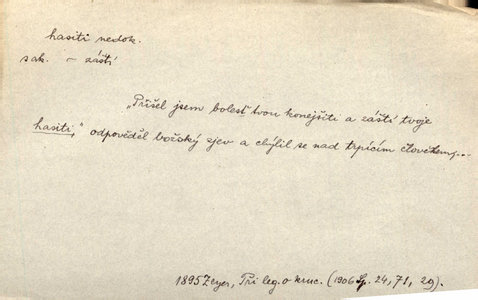 hasiti nedok.
sak. – záští
„Přišel jsem bolest tvou konejšiti a záští tvoje
hasiti,“ odpověděl božský zjev a chýlil se nad trpícím člověkem,...
1895 Zeyer, Tři leg. o kruc. (1906 Sp. 24, 71, 29).